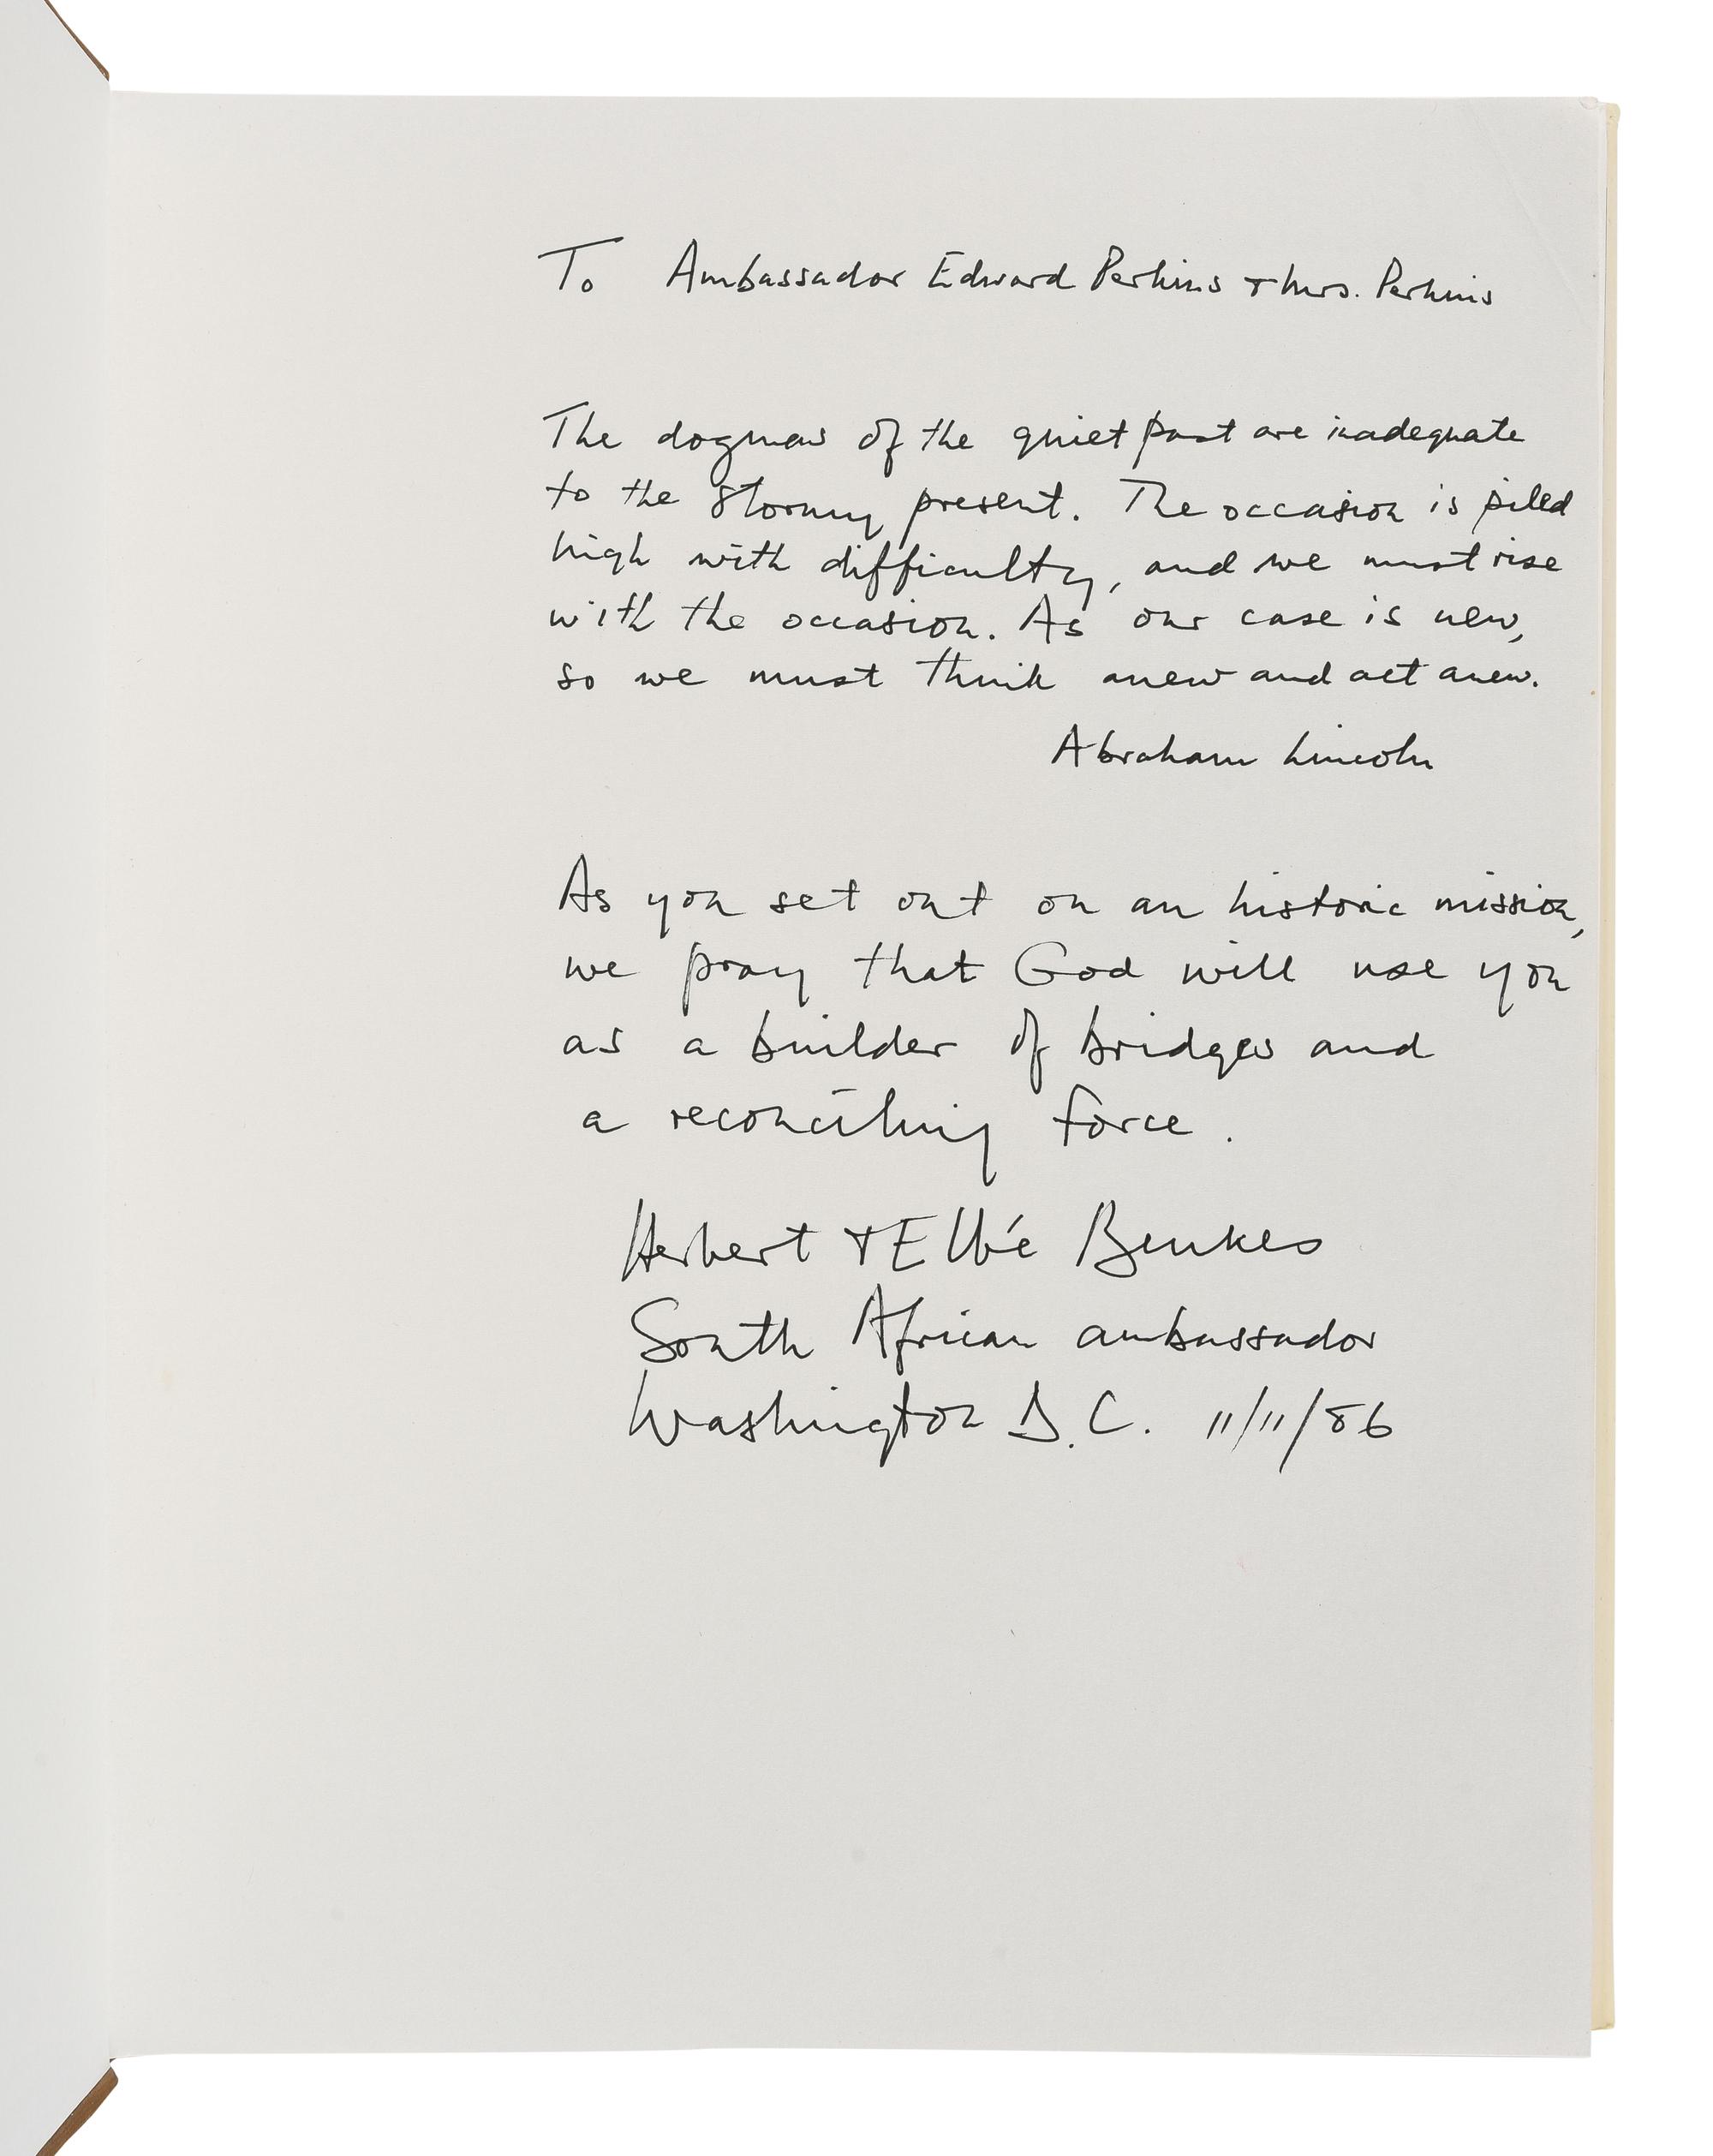 To Ambassador Edward Perkins + Mrs. Perkins
The dogmas of the quiet past are inadequate
to the stormy present. The occasion is piled
high with difficulty, and we must rise
with the occasion. As our case is new,
so we must think anew and act anew.
Abraham Lincoln
As you set out on an historic mission,
we pray that God will use you
as a builder of bridges and
a reconciling force.
Herbert + Ellbé Beukes
South African ambassador
Washington D.C. 11/11/86